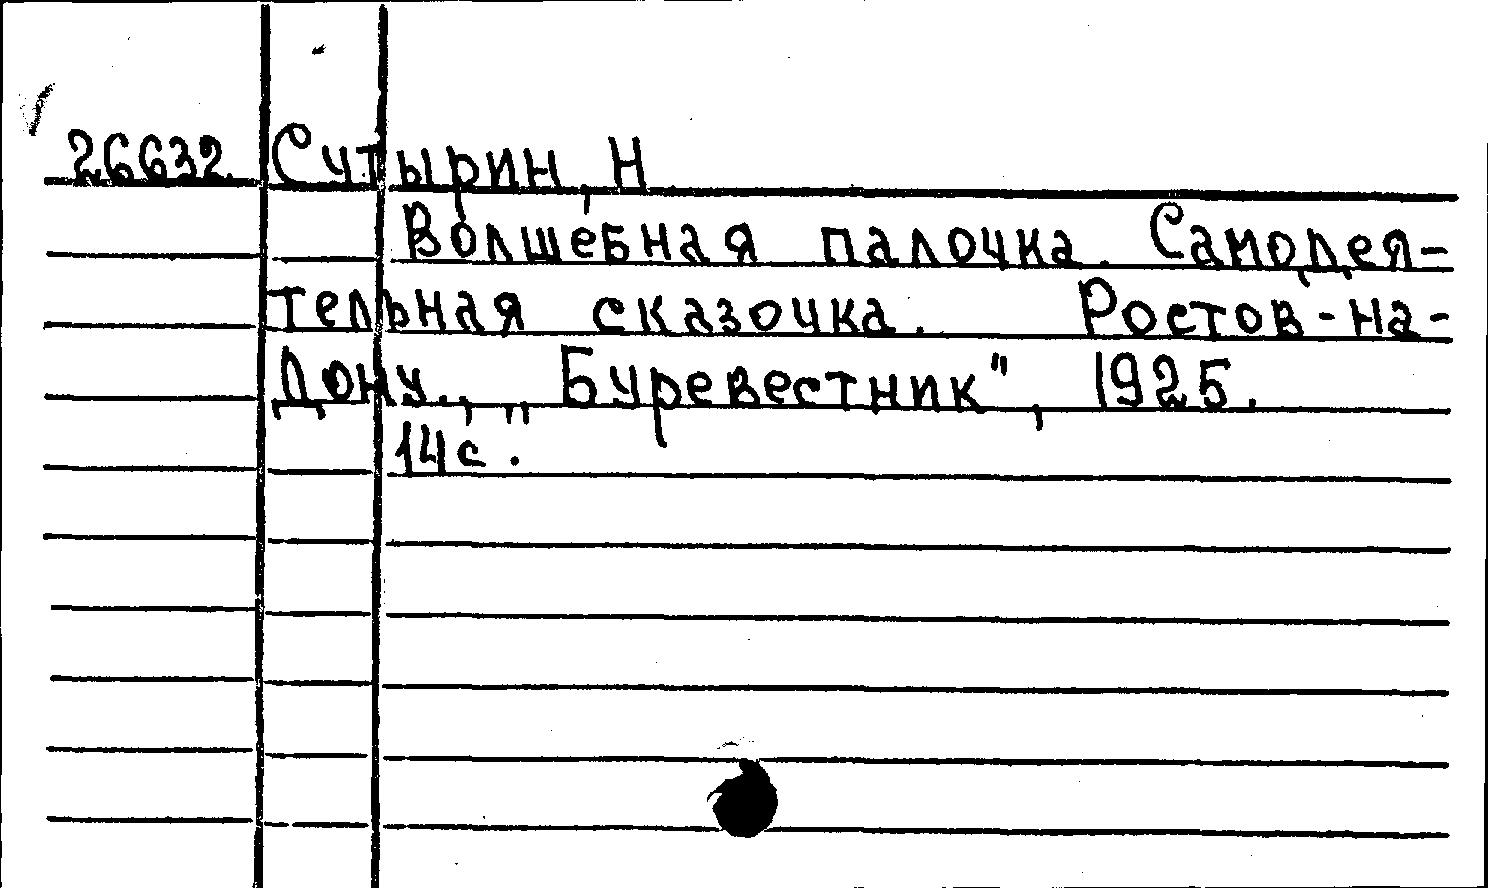 26632. Сутырин, Н
Волшебная палочка. Самодея-
тельная сказочка. Ростов-на-
Дону., „Буревестник", 1925.
14с.